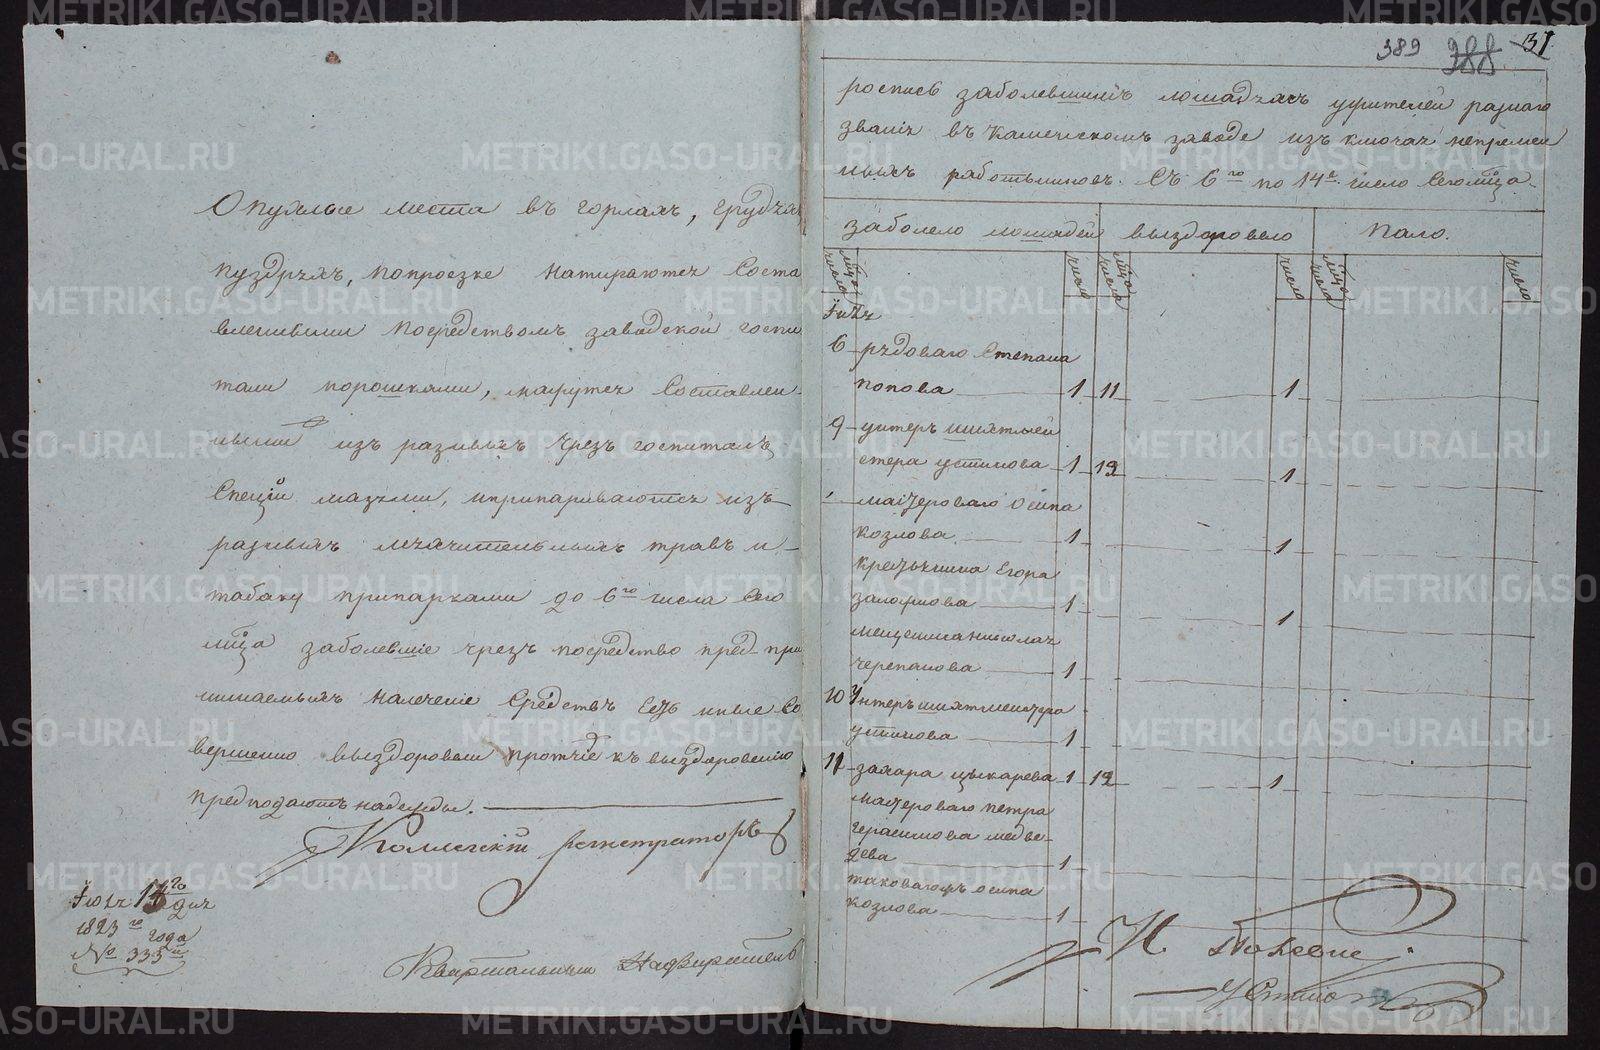 Опухлые места въ горлахъ, грудяхъ
пуздряхъ, попроезке натираются соста
вленными посредствомъ заводской госпи
тали порошками, мажутся составлен-
ными изъ разныхъ чрезъ госпиталь
спецiй мазями, ипрпариваются изъ
разныхъ мягчительныхъ травъ и
табаку припарками до 6го числа сего
мца заболевшiе чрезъ посредство пред-при
нимаемыхъ налеченiе средствъ иные со
вершенно выздоровели протчiе къ выздоровлению
предподаютъ надежды.
Коллегскiй регистраторъ
Iюля 14го дня
1823го года
№ 333й
Квартальный Надзиратель
389 388 31
роспись заболевшимъ лошадямъ жителей разнаго
званiя въ Каменскомъ заводе изъ ключая непремен
ныхъ работниковъ. Съ 6го по 14е число сегомца.
заболело лошадей выздоровело пало.
мца числа число мца числа число мца числа число
Iюля
6 рядоваго Степана
попова 1 11 1
9 унтеръ шихтмей
стера устинова 1 12 1
мастероваго Осипа
козлова 1 1
Егора
1 1
мещенина николая
черепанова 1
10 Унтеръ шихтмейстера
устинова 1
11 захара цыкарева 1 12 1
мастероваго петра
герасимова медве-
дева 1
таковагожъ осипа
козлова 1